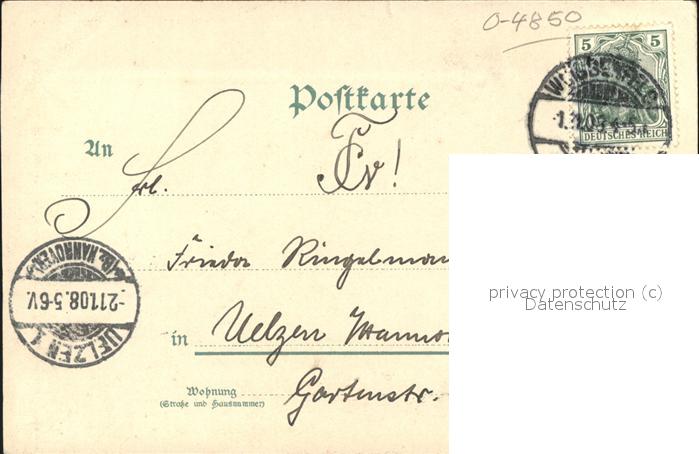 0-4850
5 5
DEUTSCHES REICH
Postkarte
An
Frl.
Fr!
Frieda Ringelman
in Uelzen Hannov
Wohnung
(Straße und Hausnummer)
Gartenstr.
UELZEN 1.
(Bz. HANNOVER)
-2.11.08.5-6V.
privacy protection (c)
Datenschutz